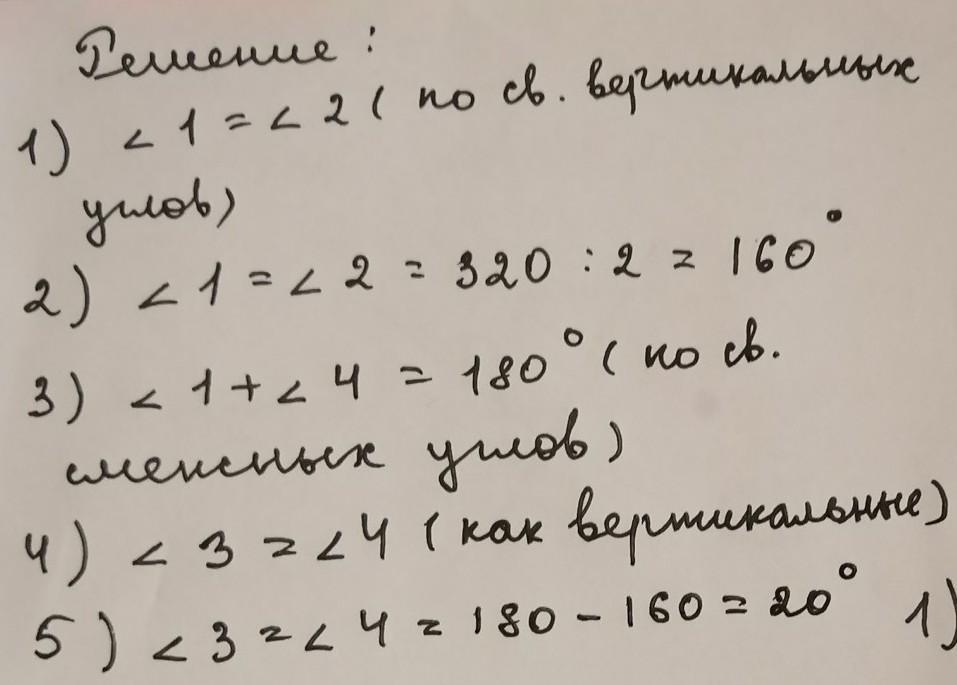 Решение:
1) < 1 = < 2 ( по св. вертикальных
углов)
2) < 1 = < 2 = 320 : 2 = 160°
3) < 1 + < 4 = 180° ( по св.
смежных углов)
4) < 3 = < 4 ( как вертикальные)
5) < 3 = < 4 = 180 - 160 = 20° 1)